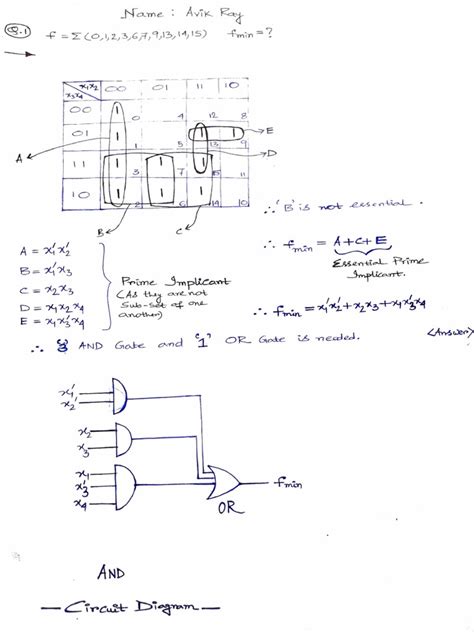 Name : Avik Ray
Q.1 f = Σ (0,1,2,3,6,7,9,13,14,15) fmin = ?
x₁x₂ 00 01 11 10
x₃x₄
00 1 0 4 12 8
01 1 1 5 1 13 1 9 E
11 1 3 1 7 1 15 11 D
10 1 2 1 6 1 14 10
A
B C
∴ 'B' is not essential.
A = x₁'x₂'
B = x₁'x₃
C = x₂x₃
D = x₁x₂x₄
E = x₁x₃'x₄
Prime Implicant
(As they are not
Sub-set of one
another)
∴ fmin = A+C+E
Essential Prime
Implicant.
∴ fmin = x₁'x₂' + x₂x₃ + x₁x₃'x₄
<Answer>
∴ "3" AND Gate and "1" OR Gate is needed.
x₁'
x₂'
x₂
x₃
x₁
x₃'
x₄
fmin
OR
AND
— Circuit Diagram —